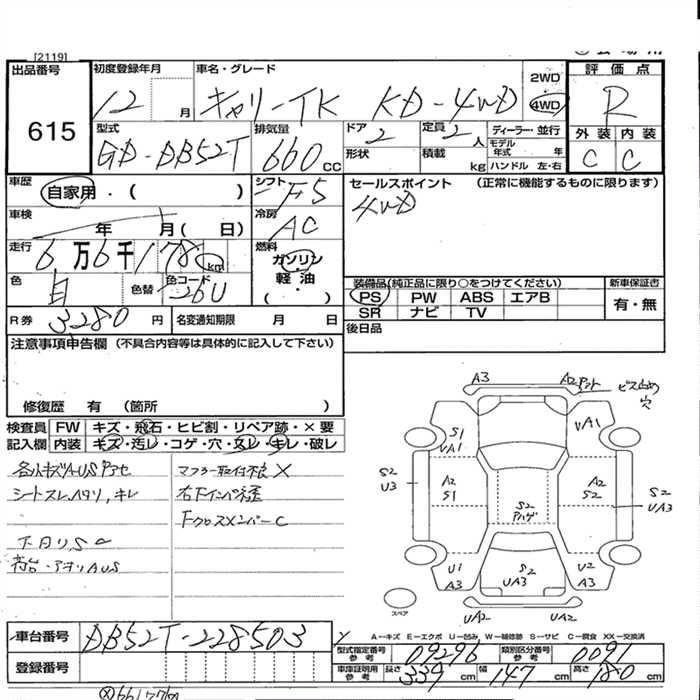 [2119]
出品番号 初度登録年月 車名・グレード 2WD 4WD 評価点
615 12 月 キャリーTK KD-4WD R
型式 排気量 ドア 定員 ディーラー・並行 外装 内装
GD-DB52T 660 CC 2 2 人 モデル年式 年 C C
形状 積載 kg ハンドル 左・右
車歴 自家用・( ) シフト F5 セールスポイント (正常に機能するものに限ります)
車検 年 月( 日) 冷房 AC 4WD
走行 6万6千178 km 燃料 ガソリン 軽油 ( ・ )
色 白 色替 色コード 26U 装備品(純正品に限り○をつけてください) 新車保証書
PS PW ABS エアB 有・無
SR ナビ TV
R券 3280 円 名変通知期限 月 日 後日品
注意事項申告欄 (不具合内容等は具体的に記入して下さい)
修復歴 有 (箇所 )
検査員 FW キズ・飛石・ヒビ割・リペア跡・×要
記入欄 内装 キズ・汚レ・コゲ・穴・スレ・キレ・破レ
各小キズAUSアセ マフラー取付不良×
シートスレ、ヘタリ、キレ 右下インパネ
Fクロスメンバー C
下回リS
荷台・アオリAUS
A3 A2 ビス止め穴
S1 VA1 VA1
S2 U3 A2 S1 S2 Pハゲ A2 S2 S2 UA3
U1 A3 S2 UA3 U2 A3
スペア UA2 UA2
A－キズ E－エクボ U－凹み W－補修跡 S－サビ C－腐食 XX－交換済
車台番号 DB52T-228503
型式指定番号 参考 09296 類別区分番号 参考 0091
登録番号 車庫証明用 参考 長さ 339 幅 147 高さ 180 cm